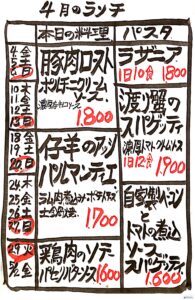 4月のランチ
本日の料理
パスタ
4 金
5 土
6 日
豚肉ロースト
ポルチーニクリーム
ソース
1.800
ラザニア
1日10食
1800
10 木
11 金
12 土
13 日
渡り蟹の
スパゲッティ
濃厚トマトクリームソース
1日12食
1900
18 金
19 土
20 日
仔羊のアッシ
パルマンティエ
1900
24 木
25 金
26 土
27 日
自家製ベーコン
と
トマトの煮込
ソース
スパゲッティ
1.600
29 火
30 水
鶏肉のソテー
バジリコソース
1600